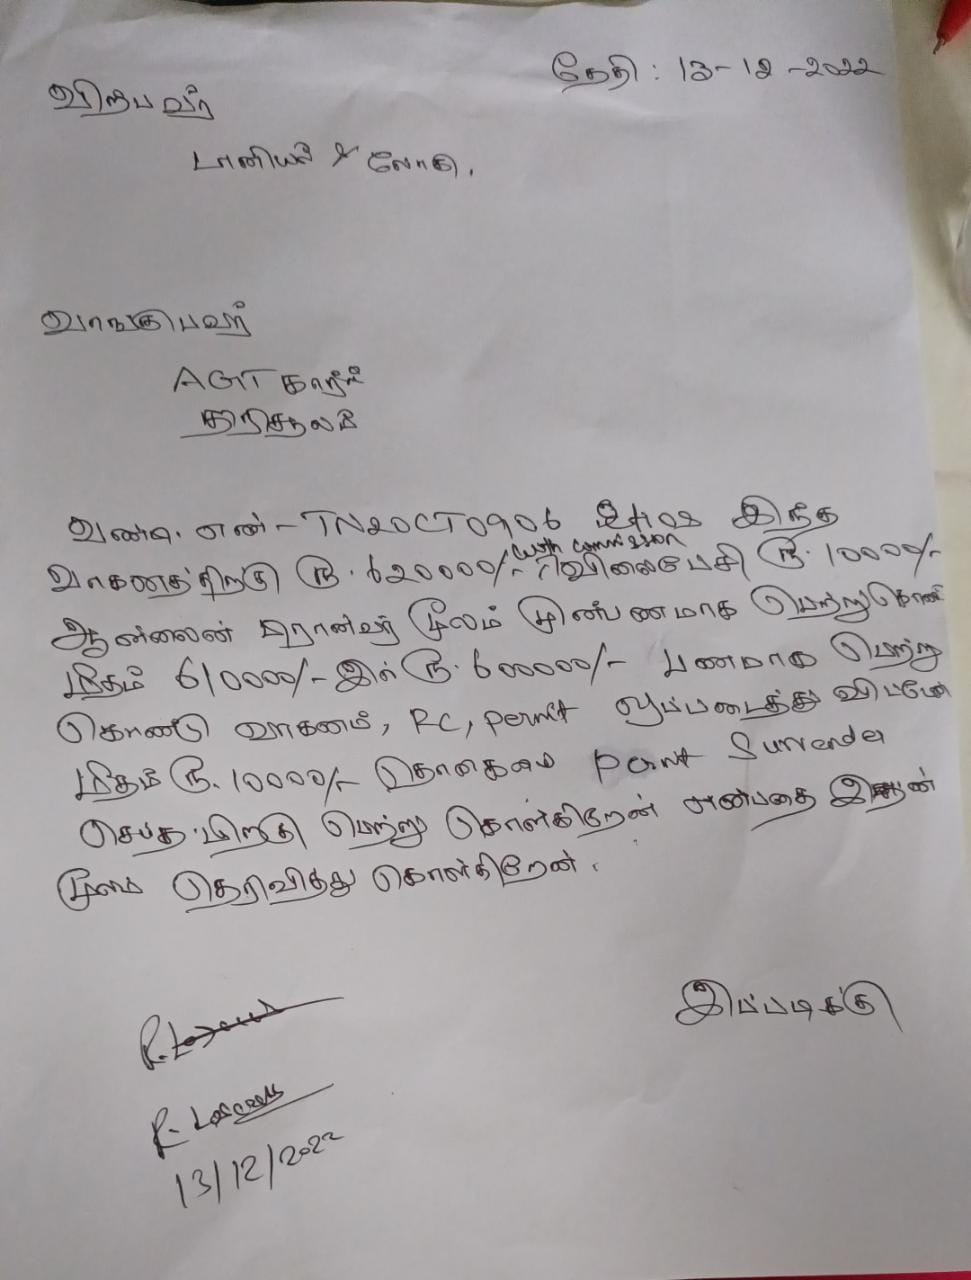 தேதி : 13-12-2022
விற்பவர்
டானியல் & லோகு.
வாங்குபவர்
AGT கார்ஸ்
வண்டி. எண் - TN20CT0906 இந்த
with commission
வாகனத்திற்கு ரூ. 620000/- விலைபேசி ரூ. 10000/-
ஆன்லைன் மூலம் முன்பணமாக பெற்றுகொண்டு
மீதம் 610000/- இல் ரூ. 600000/- பணமாக பெற்று
கொண்டு வாகனம், RC, permit ஒப்படைத்து விடுவேன்
மீதம் ரூ. 10000/- தொகை permit Surrender
செய்த பிறகு பெற்று கொள்கிறேன் என்பதை இதன்
மூலம் தெரிவித்து கொள்கிறேன்.
இப்படிக்கு
13/12/2022